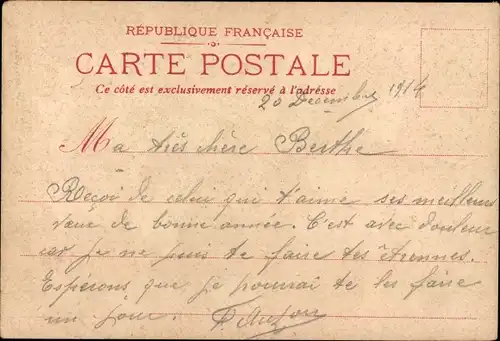 RÉPUBLIQUE FRANÇAISE
CARTE POSTALE
Ce côté est exclusivement réservé à l'adresse
20 Decembre 1914
Ma très chère Berthe
Reçoi de celui qui t'aime ses meilleurs
vœux de bonne année. C'est avec douleur
car je ne puis te faire tes étrennes.
Espérons que je pourrai te les faire
un jour.